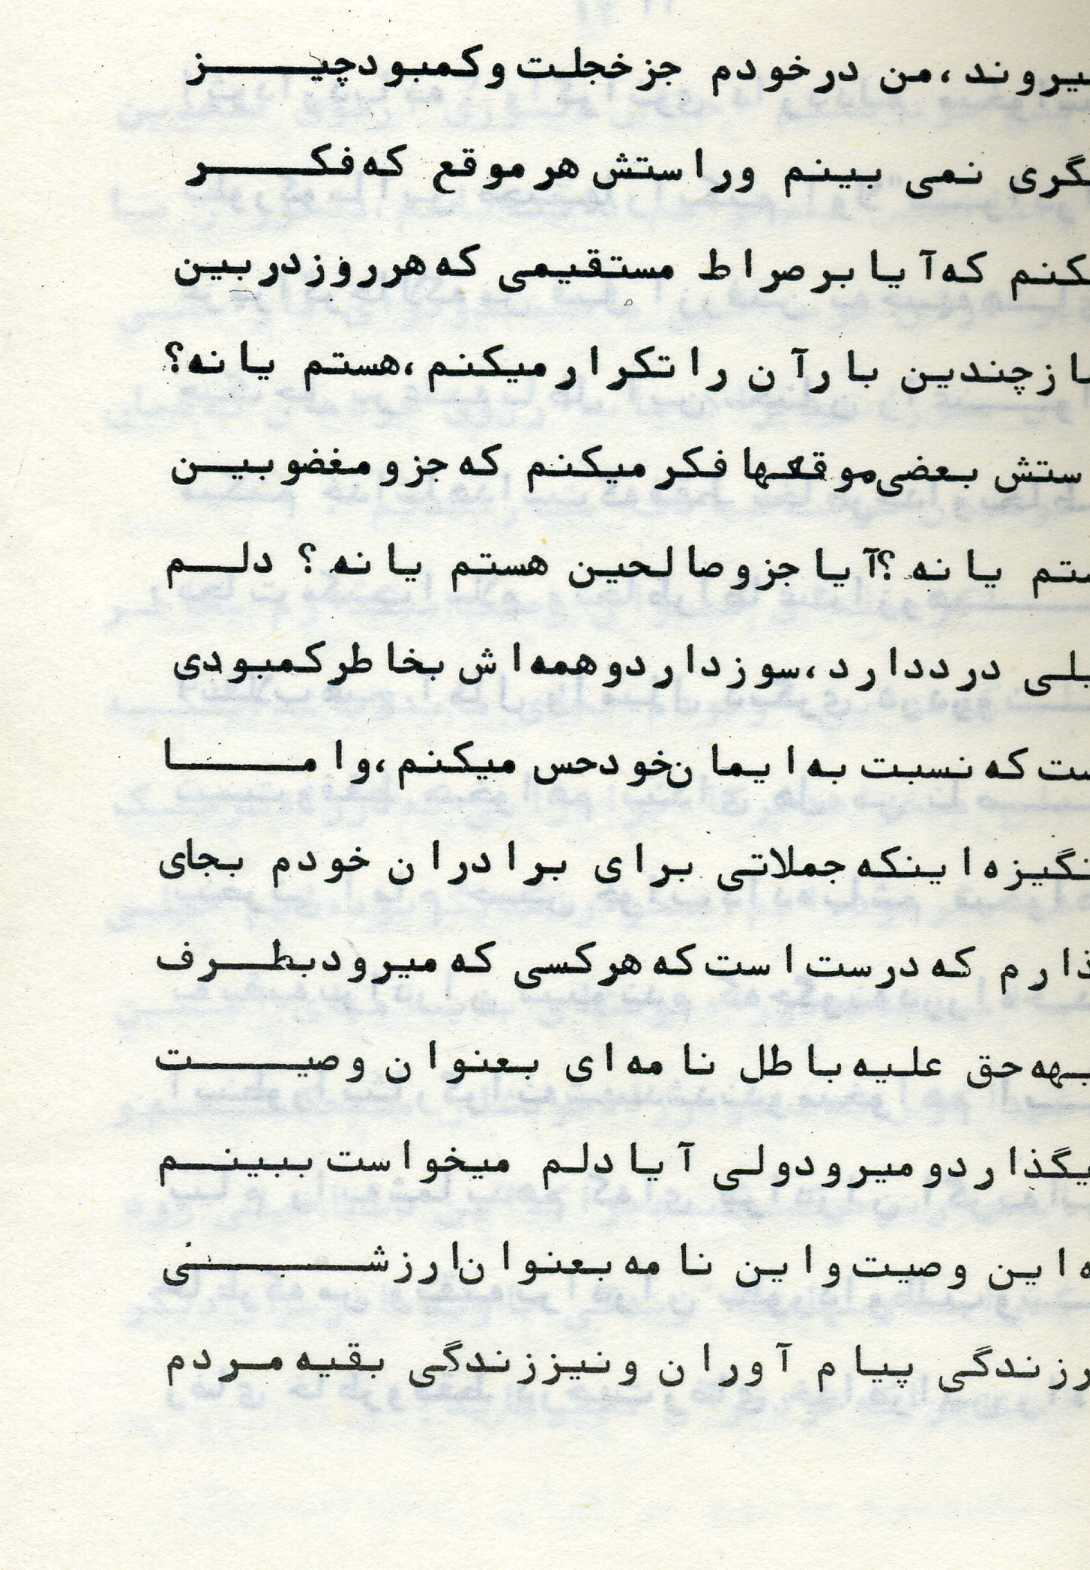 یروند،من درخودم جزخجلت وکمبودچیز
گری نمی بینم وراستش هرموقع که فکر
کنم که آیا برصراط مستقیمی که هرروزدربین
ازچندین بارآن راتکرارمیکنم،هستم یانه؟
ستش بعضی موقعها فکرمیکنم که جزومغضوبین
ستم یانه؟آیاجزوصالحین هستم یانه؟ دلم
لی درددارد،سوزداردوهمه‌اش بخاطرکمبودی
ست که نسبت به ایمان خودحس میکنم،واما
نگیزه اینکه جملاتی برای برادران خودم بجای
ذارم که درست است که هرکسی که میرودبطرف
بهه حق علیه باطل نامه‌ای بعنوان وصیت
یگذاردومیرودولی آیادلم میخواست ببینم
ه این وصیت واین نامه بعنوان ارزشی
رزندگی پیام آوران ونیززندگی بقیه مردم